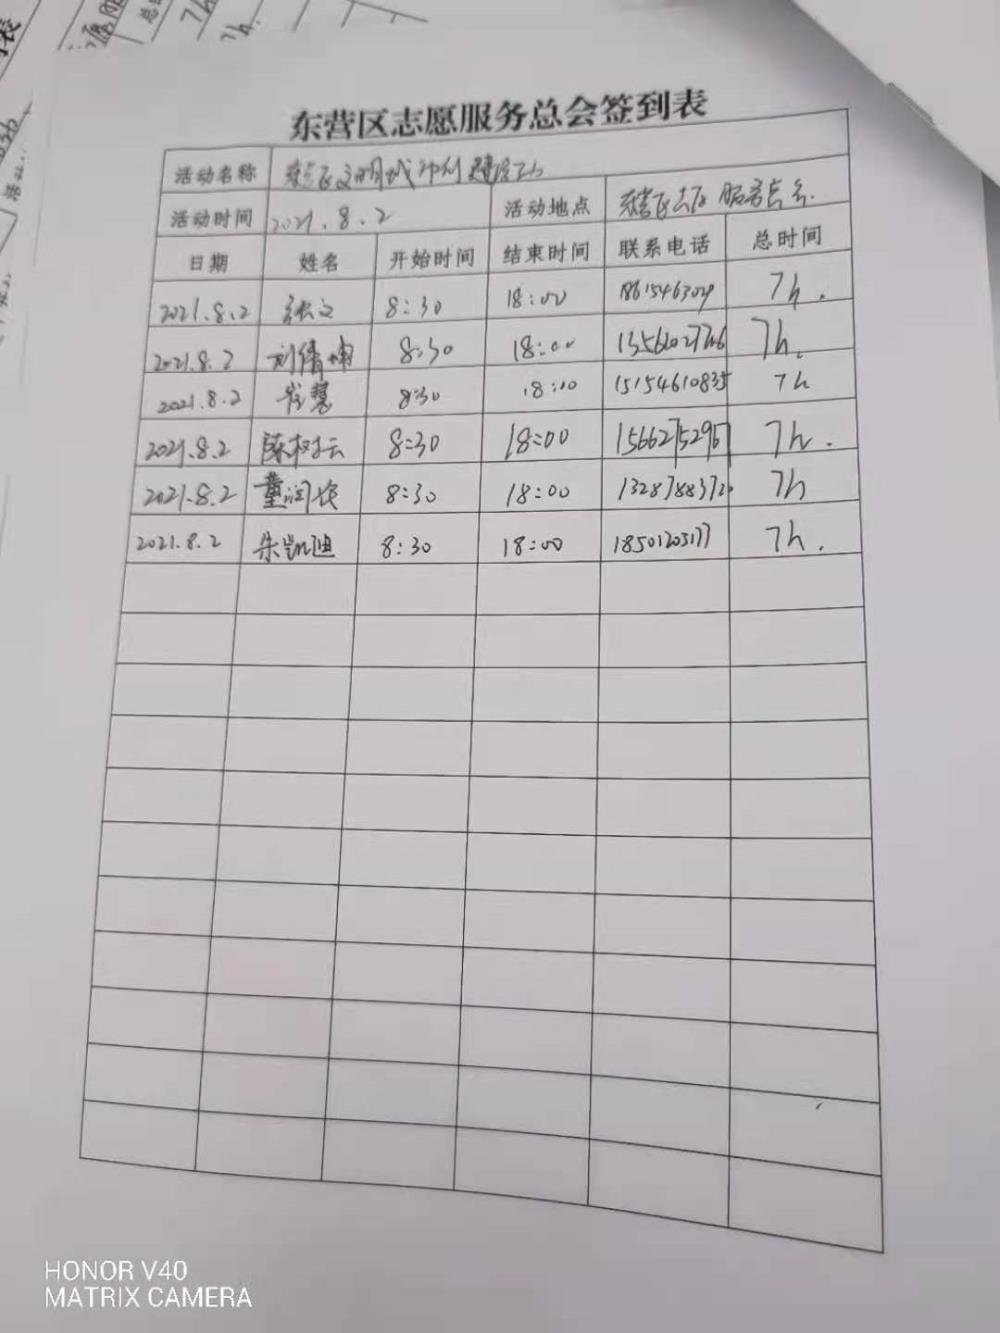 东营区志愿服务总会签到表
活动名称 东营区文明城市创建
活动时间 2021.8.2 活动地点 东营区志愿服务总会
日期 姓名 开始时间 结束时间 联系电话 总时间
2021.8.2 张文 8:30 18:00 7h.
2021.8.2 刘倩楠 8:30 18:00 7h.
2021.8.2 崔慧 8:30 18:00 15154610835 7h
2021.8.2 陈树云 8:30 18:00 15662752967 7h.
2021.8.2 董润 8:30 18:00 7h
2021.8.2 朱凯迪 8:30 18:00 7h.
HONOR V40
MATRIX CAMERA